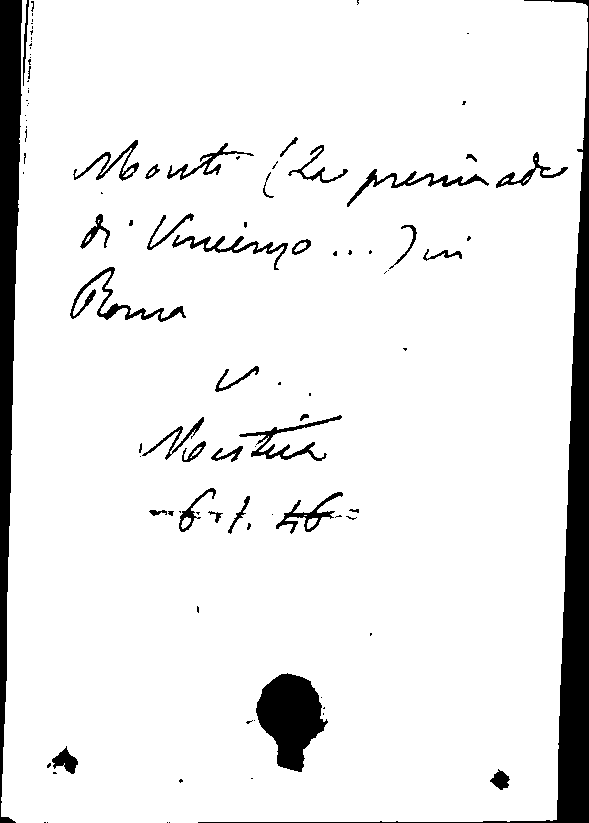 Monti (La prima ode
di Vincenzo ...) in
Roma
v.
Mestica
6. 7. 46